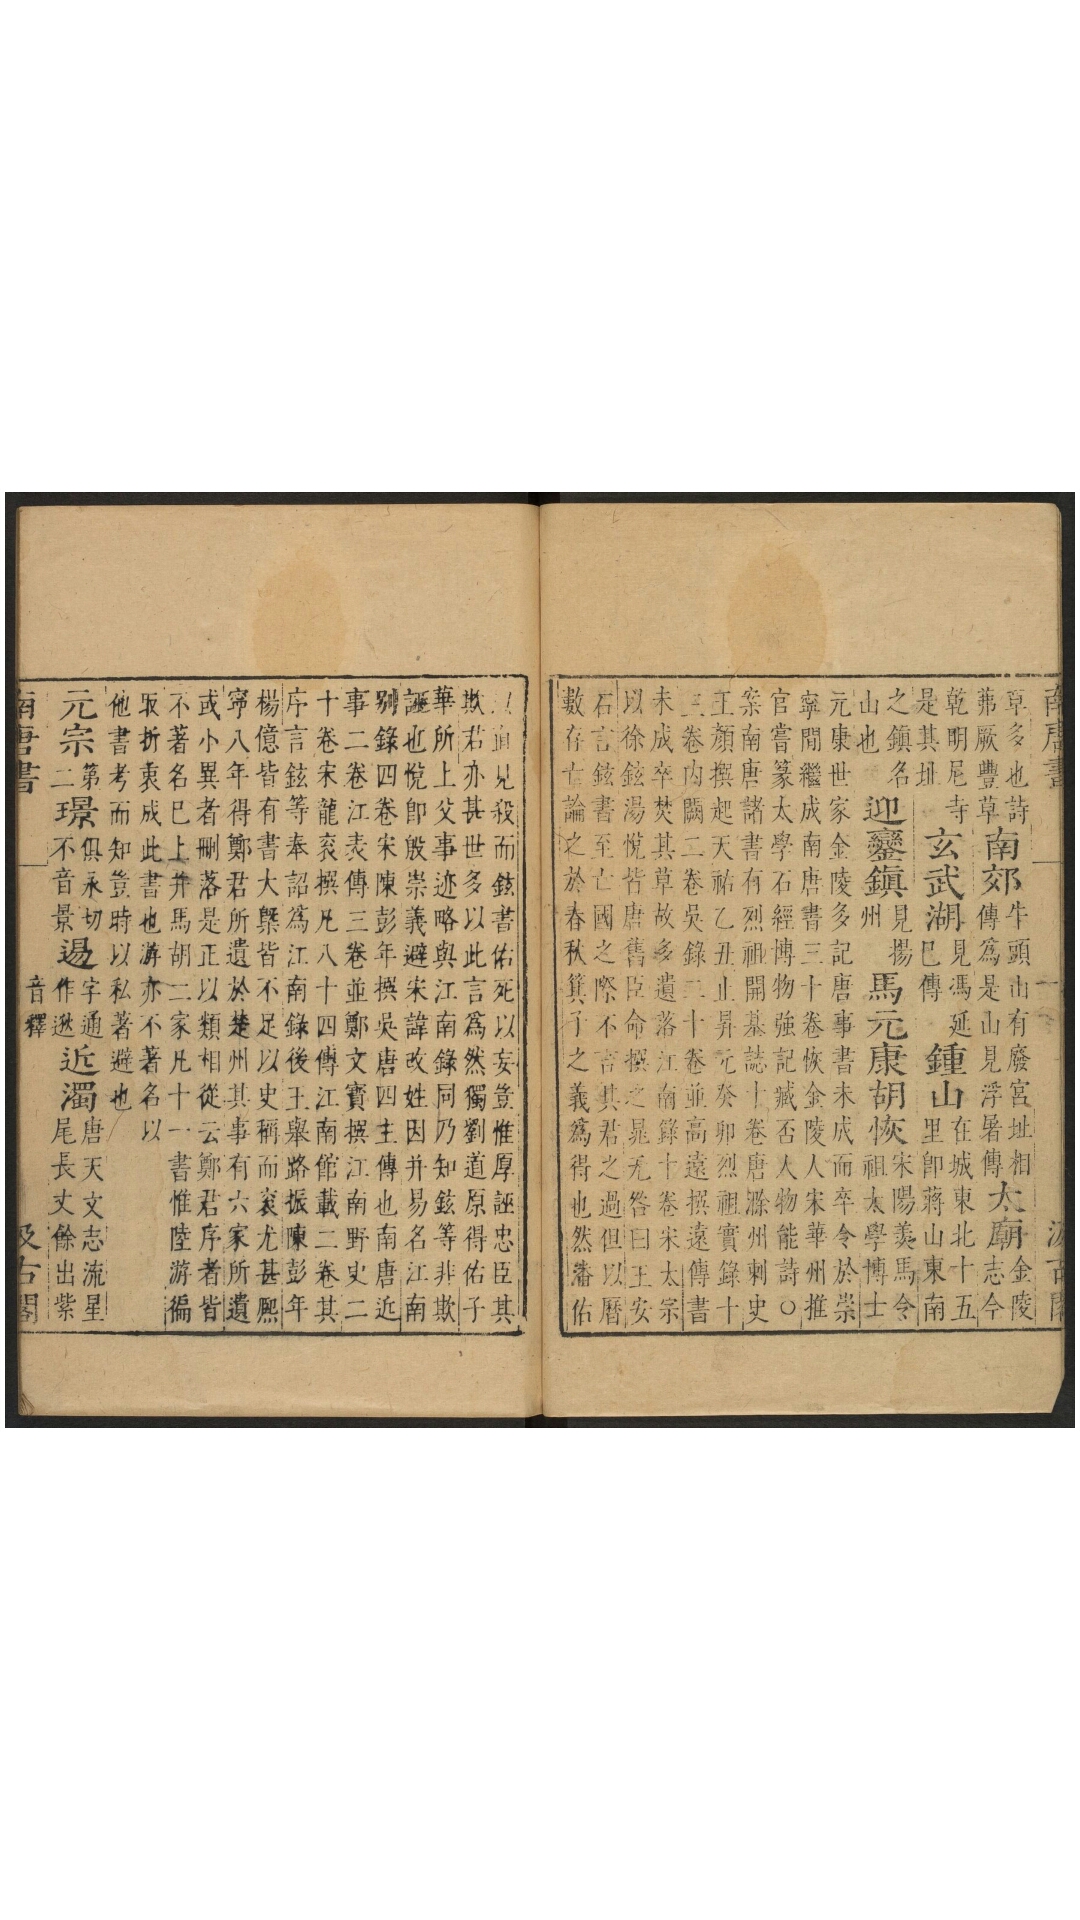 南唐書 一 汲古閣
草多也詩
茀厥豐草
南郊
牛頭山有廢宮址相
傳爲是山見浮暑傳
太廟
金陵
志今
乾明尼寺
是其址
玄武湖
見馮延
巳傳
鍾山
在城東北十五
里卽蔣山東南
之鎮名
山也
迎鑾鎮
見揚
州
馬元康胡恢
宋陽羨馬令
祖太學博士
元康世家金陵多記唐事書未成而卒令於崇
寧閒繼成南唐書三十卷恢金陵人宋華州推
官嘗篆太學石經博物強記臧否人物能詩○
案南唐諸書有烈祖開基誌十卷唐滁州刺史
王顏撰起天祐乙丑止昇元癸卯烈祖實錄十
三卷內闕二卷吳錄二十卷並高遠撰遠傳書
未成卒焚其草故多遺落江南錄十卷宋太宗
以徐鉉湯悅皆唐舊臣命撰之晁无咎曰王安
石言鉉書至亡國之際不言其君之過但以曆
數存亡論之於春秋箕子之義爲得也然潘佑
以直見殺而鉉書佑死以妄豈惟厚誣忠臣其
欺君亦甚世多以此言爲然獨劉道原得佑子
華所上父事迹略與江南錄同乃知鉉等非欺
誣也悅卽殷崇義避宋諱改姓因幷易名江南
別錄四卷宋陳彭年撰吳唐四主傳也南唐近
事二卷江表傳三卷並鄭文寶撰江南野史二
十卷宋龍袞撰凡八十四傳江南館載二卷其
序言鉉等奉詔爲江南錄後王舉路振陳彭年
楊億皆有書大槩皆不足以史稱而袞尤甚熙
寧八年得鄭君所遺於楚州其事有六家所遺
或小異者刪落是正以類相從云鄭君序者皆
不著名巳上幷馬胡二家凡十一書惟陸游徧
取折衷成此書也游亦不著名以
他書考而知豈時以私著避也
元宗
第
二
璟
俱永切
不音景
逷
字通
作逖
近濁
唐天文志流星
尾長丈餘出紫
南唐書 一 音釋 汲古閣